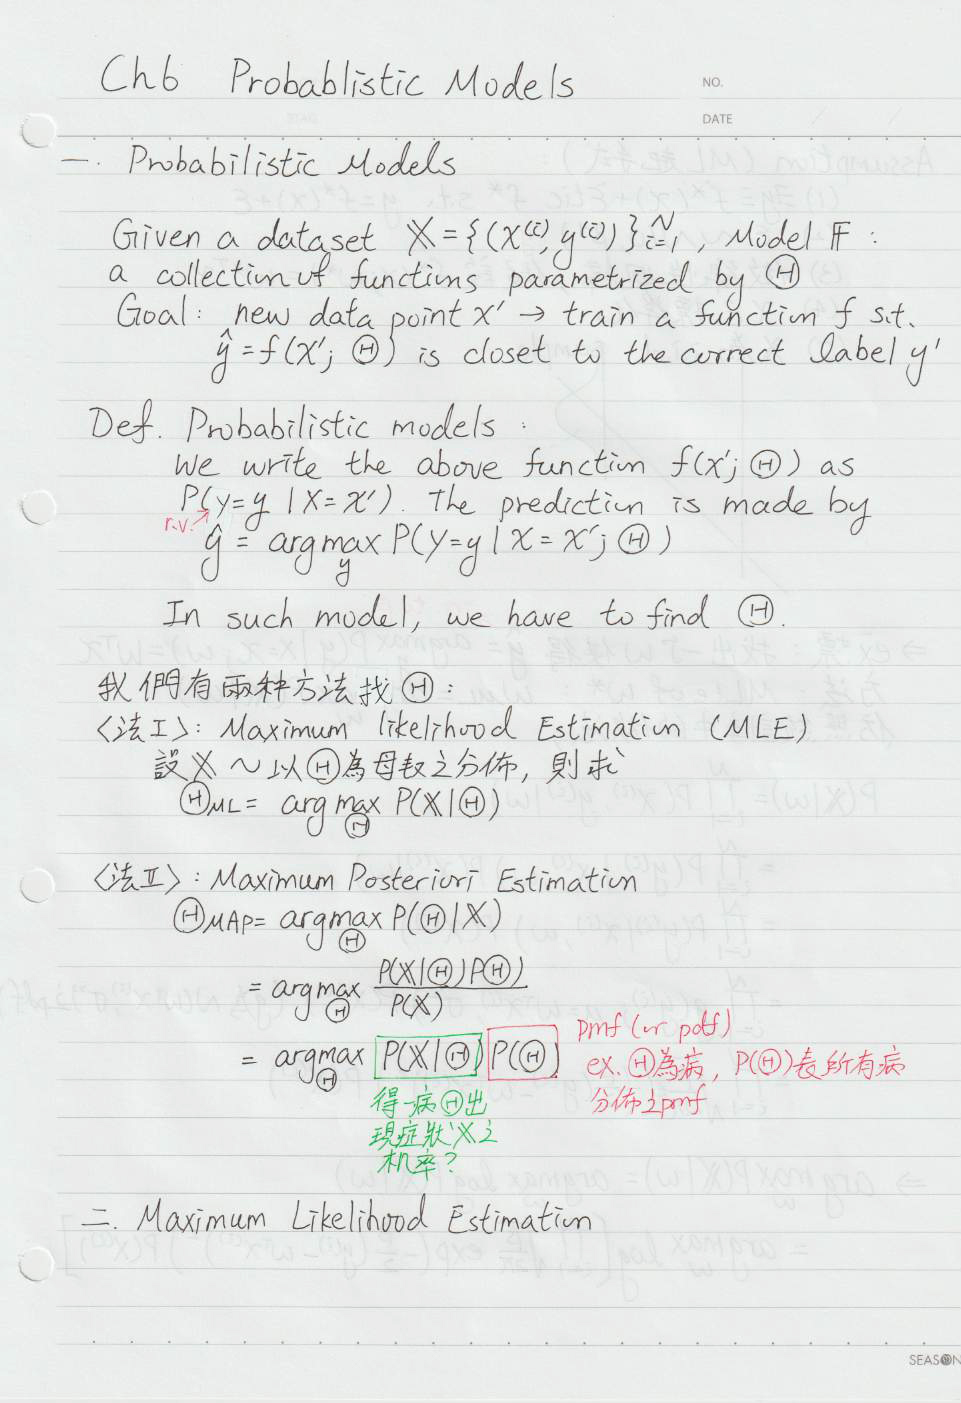 Ch6 Probablistic Models
NO.
DATE
一. Probabilistic Models
Given a dataset 𝕏 = {(x⁽ⁱ⁾, y⁽ⁱ⁾)}ᵢ₌₁ᴺ, Model 𝔽 :
a collection of functions parametrized by Ⓗ
Goal: new data point x' → train a function f s.t.
ŷ = f(x'; Ⓗ) is closet to the correct label y'
Def. Probabilistic models :
We write the above function f(x'; Ⓗ) as
P(y=y | X=x'). The prediction is made by
r.v.
ŷ = argmax_y P(Y=y | X=x'; Ⓗ)
In such model, we have to find Ⓗ.
我們有兩种方法找Ⓗ:
〈法I〉: Maximum likelihood Estimation (MLE)
設𝕏 ~ 以Ⓗ為母數之分佈, 則求
Ⓗ_ML = argmax_Ⓗ P(𝕏|Ⓗ)
〈法II〉: Maximum Posteriori Estimation
Ⓗ_MAP = argmax_Ⓗ P(Ⓗ|𝕏)
= argmax_Ⓗ P(𝕏|Ⓗ)P(Ⓗ) / P(X)
= argmax_Ⓗ P(𝕏|Ⓗ) P(Ⓗ)
pmf (or pdf)
ex. Ⓗ為病, P(Ⓗ)表所有病
分佈之pmf
得一病Ⓗ出
現症狀𝕏之
机率?
二. Maximum Likelihood Estimation
SEASON